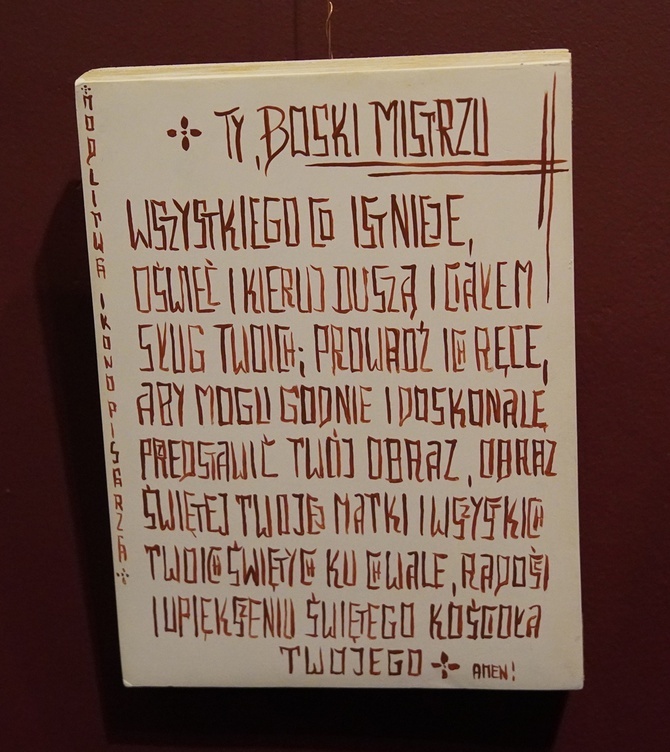 MODLITWA IKONOPISARZA
TY, BOSKI MISTRZU
WSZYSTKIEGO CO ISTNIEJE,
OŚWIEĆ I KIERUJ DUSZĄ I CIAŁEM
SŁUG TWOICH; PROWADŹ ICH RĘCE,
ABY MOGLI GODNIE I DOSKONALE
PRZEDSTAWIĆ TWÓJ OBRAZ, OBRAZ
ŚWIĘTEJ TWOJEJ MATKI I WSZYSTKICH
TWOICH ŚWIĘTYCH KU CHWALE, RADOŚCI
I UPIĘKSZENIU ŚWIĘTEGO KOŚCIOŁA
TWOJEGO AMEN!